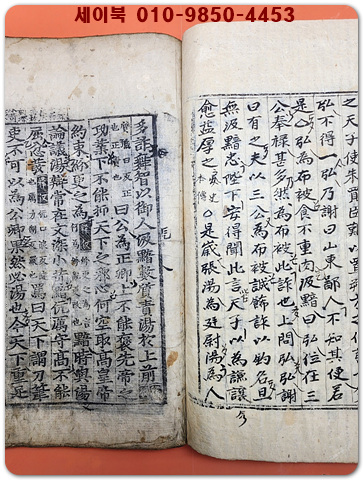 세이북 010-9850-4453
之天子使朱買臣
弘不得一弘乃謝曰山東鄙人不知其便若
是公弘為布被食不重肉汲黯曰弘位在三
公奉祿甚多然為布被此詐也上問弘弘謝
曰有之夫以三公為布被誠飾詐以釣名且
無汲黯忠陛下安得聞此言天子以為謙讓
愈益厚之 本傳 ○是歲張湯為廷尉湯為人
多詐舞智以御人汲黯數質責湯於上前
曰公為正卿上不能褒先帝之
功業下不能抑天下之邪心何空取高皇帝
約束紛更之為 黯時與湯
論議湯辯常在文深小苛黯伉厲守高不能
屈忿發 罵曰天下謂刀筆
吏不可以為公卿果然必湯也令天下重足